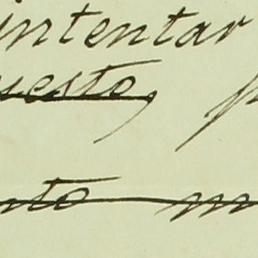 intentar
uesto, p
nto m